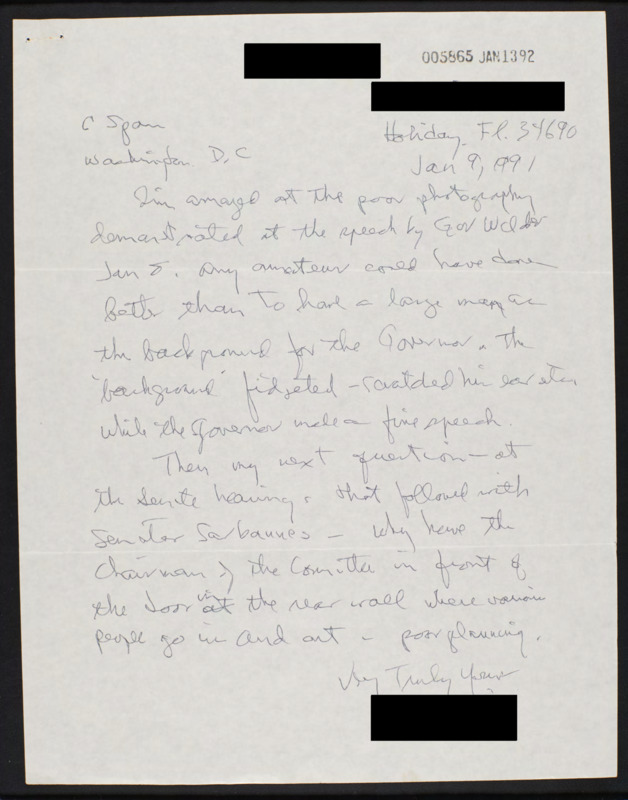 005865 JAN1392
C Span
Holiday, Fl. 34690
Washington. D.C
Jan 9, 1991
I'm amazed at the poor photography
demonstrated at the speech by Gov Wilder
Jan 8. Any amateur could have done
better than to have a large man as
the background for the Governor. The
"background" fidgeted - scratched his ear etc
while the Governor made a fine speech.
Then my next question - at
the Senate hearing that followed with
Senator Sarbannes - why have the
Chairman of the Comittee in front of
the door in at the rear wall where various
people go in and out - poor planning.
Very Truly Yours